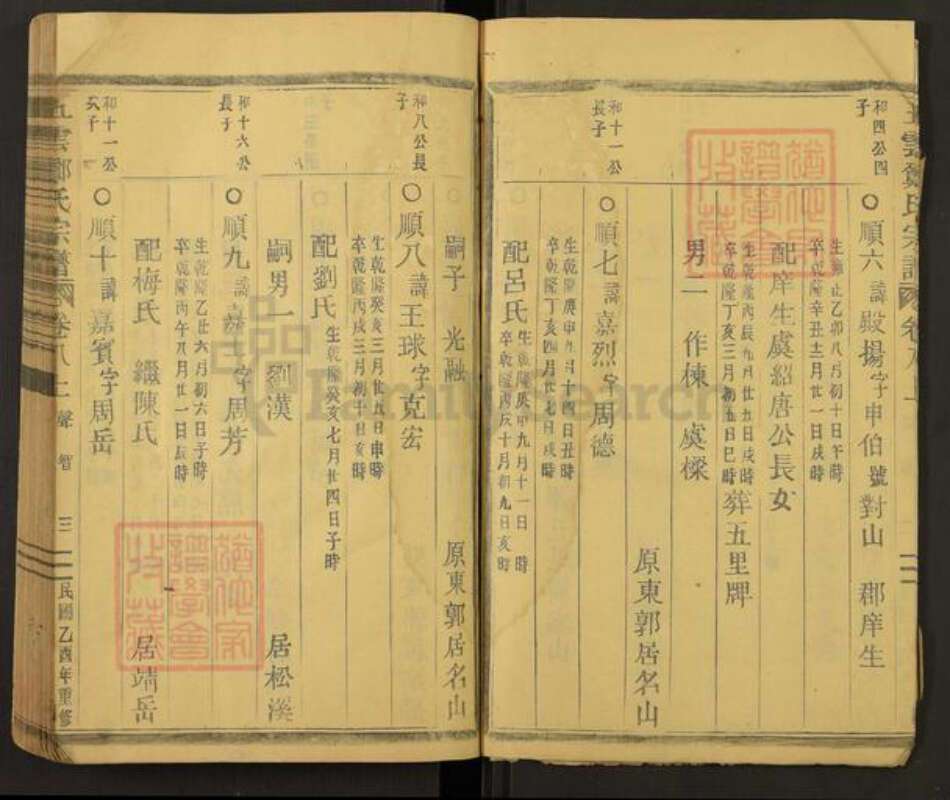 和四公四子
○順六諱毅揚字申伯號對山 郡庠生
生雍正乙卯八月初十日午時
卒乾隆辛丑十二月廿一日戌時
配庠生虞紹唐公長女
生乾隆丙辰九月廿五日戌時
卒乾隆丁亥三月初五日巳時
葬五里牌
男二 作棟 虞樑
原東郭居名山
和十一公長子
○順七 嘉烈字周德
生乾隆庚申九月十四日丑時
卒乾隆丁亥四月廿七日戌時
配呂氏
生乾隆庚申九月十一日 時
卒乾隆丙辰十月初九日亥時
嗣子 光融
原東郭居名山
和八公長子
○順八諱王球字克宏
生乾隆癸亥三月廿五日申時
卒乾隆丙戌三月初十日亥時
配劉氏
生乾隆癸亥七月廿四日子時
嗣男一 劉漢
居松溪
和十六公長子
○順九諱嘉 字周芳
生乾隆乙丑六月初六日子時
卒乾隆丙午八月廿一日辰時
配梅氏 繼陳氏
居靖岳
和十一公次子
○順十諱嘉賓字周岳
五雲鄭氏宗譜 卷八 上聲 智 三 民國乙酉年重修
FamilySearch